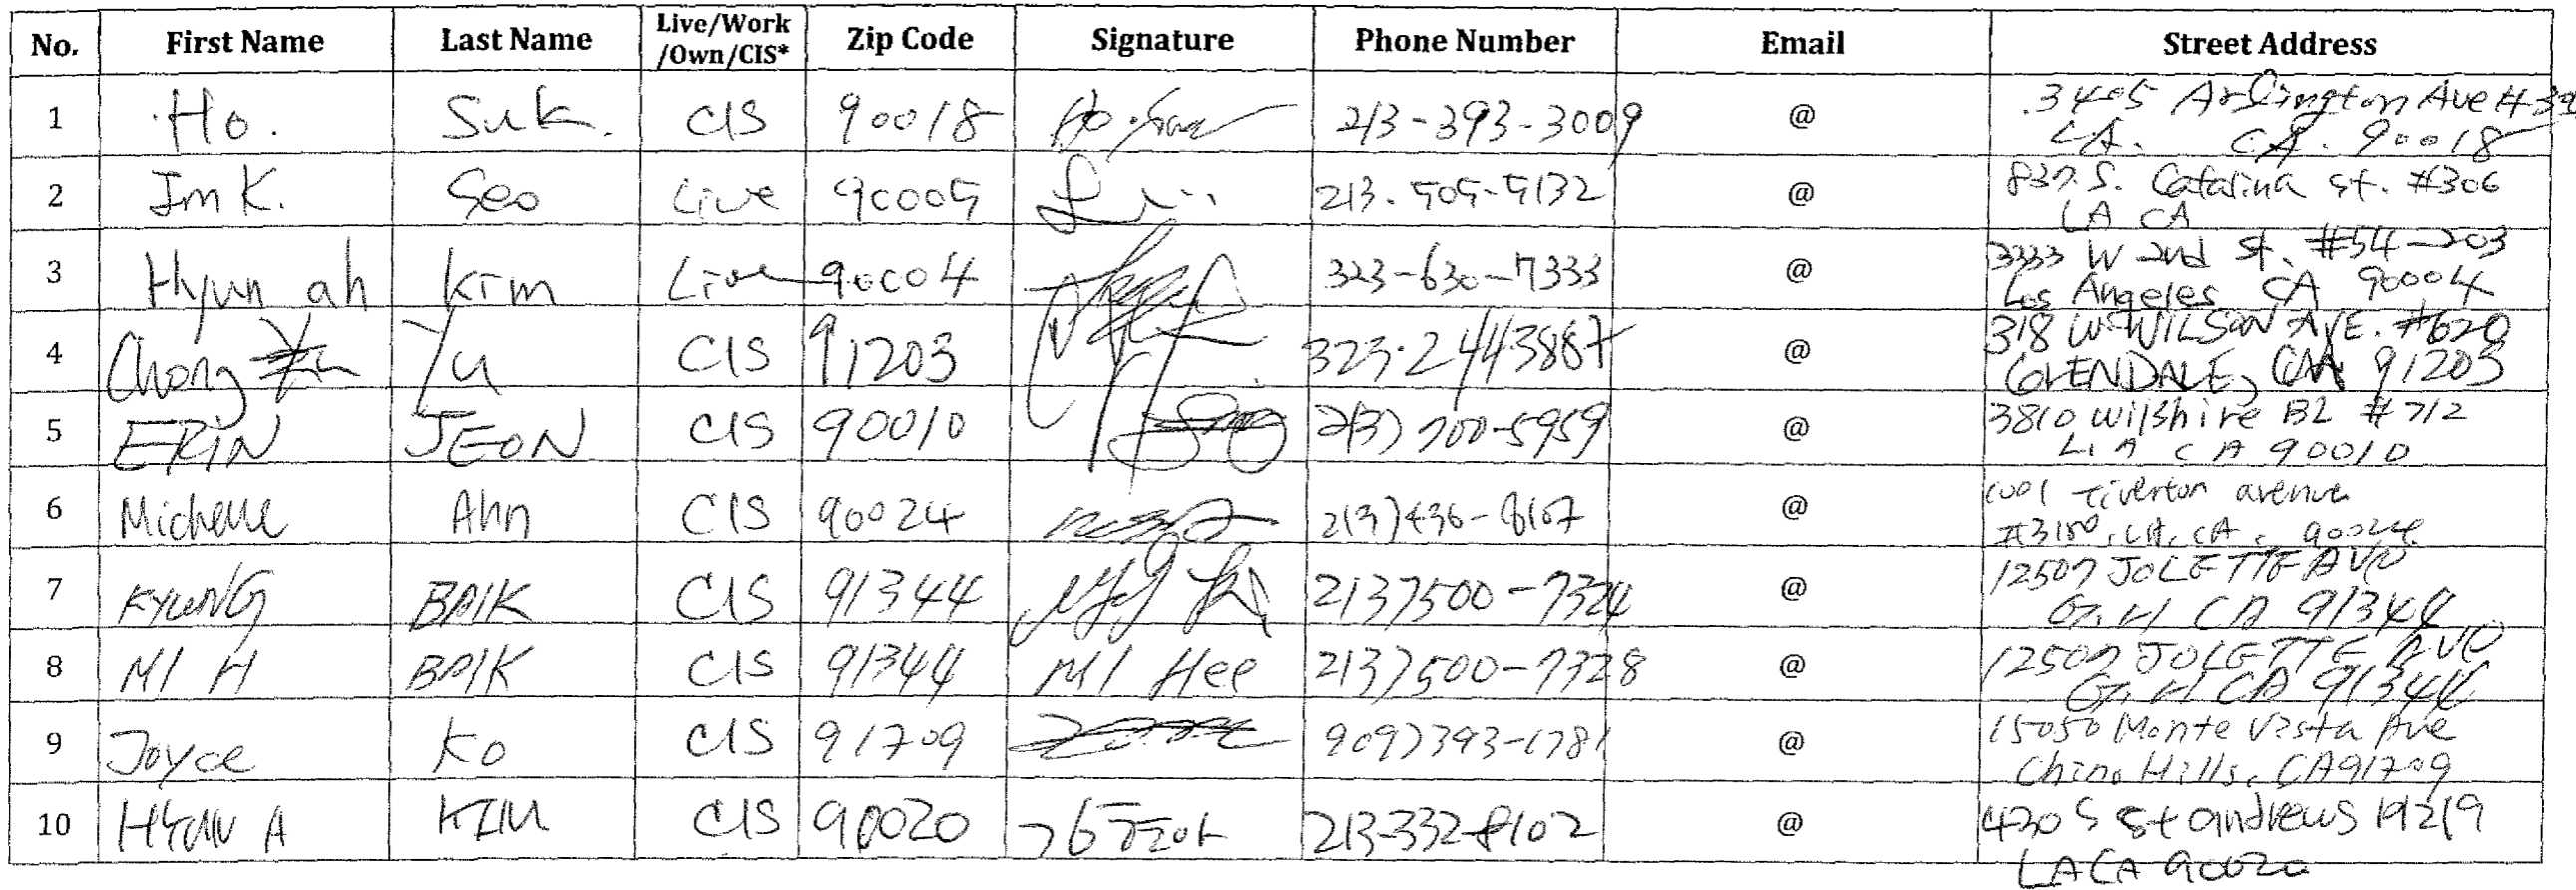 No. First Name Last Name Live/Work /Own/CIS* Zip Code Signature Phone Number Email Street Address
1 Ho. Suk. CIS 90018 213-393-3009 @ 3405 Arlington Ave
LA. CA. 90018
2 Im K. Seo Live 90005 213.505-5132 @ 837 S. Catalina st. #306
LA CA
3 Hyun ah Kim Live 90004 323-630-7333 @ 3333 W 2nd st. #54-203
Los Angeles CA 90004
4 Chong Yu CIS 91203 323.2443887 @ 318 W WILSON AVE. #620
GLENDALE, CA 91203
5 ERIN JEON CIS 90010 213) 700-5959 @ 3810 Wilshire BL #712
L.A CA 90010
6 Michelle Ahn CIS 90024 @ 1001 tiverton avenue
LA, CA, 90024
7 KYUNG BAIK CIS 91344 213)500-7324 @ 12507 JOLETTE AVE
G.H CA 91344
8 MI H BAIK CIS 91344 MI Hee 213)500-7328 @ 12507 JOLETTE AVE
G.H CA 91344
9 Joyce Ko CIS 91709 909)393-1781 @ 15050 Monte Vista Ave
Chino Hills, CA 91709
10 HYUN A KIM CIS 90020 213-332-8102 @ 430 S St andrews
LA CA 90020